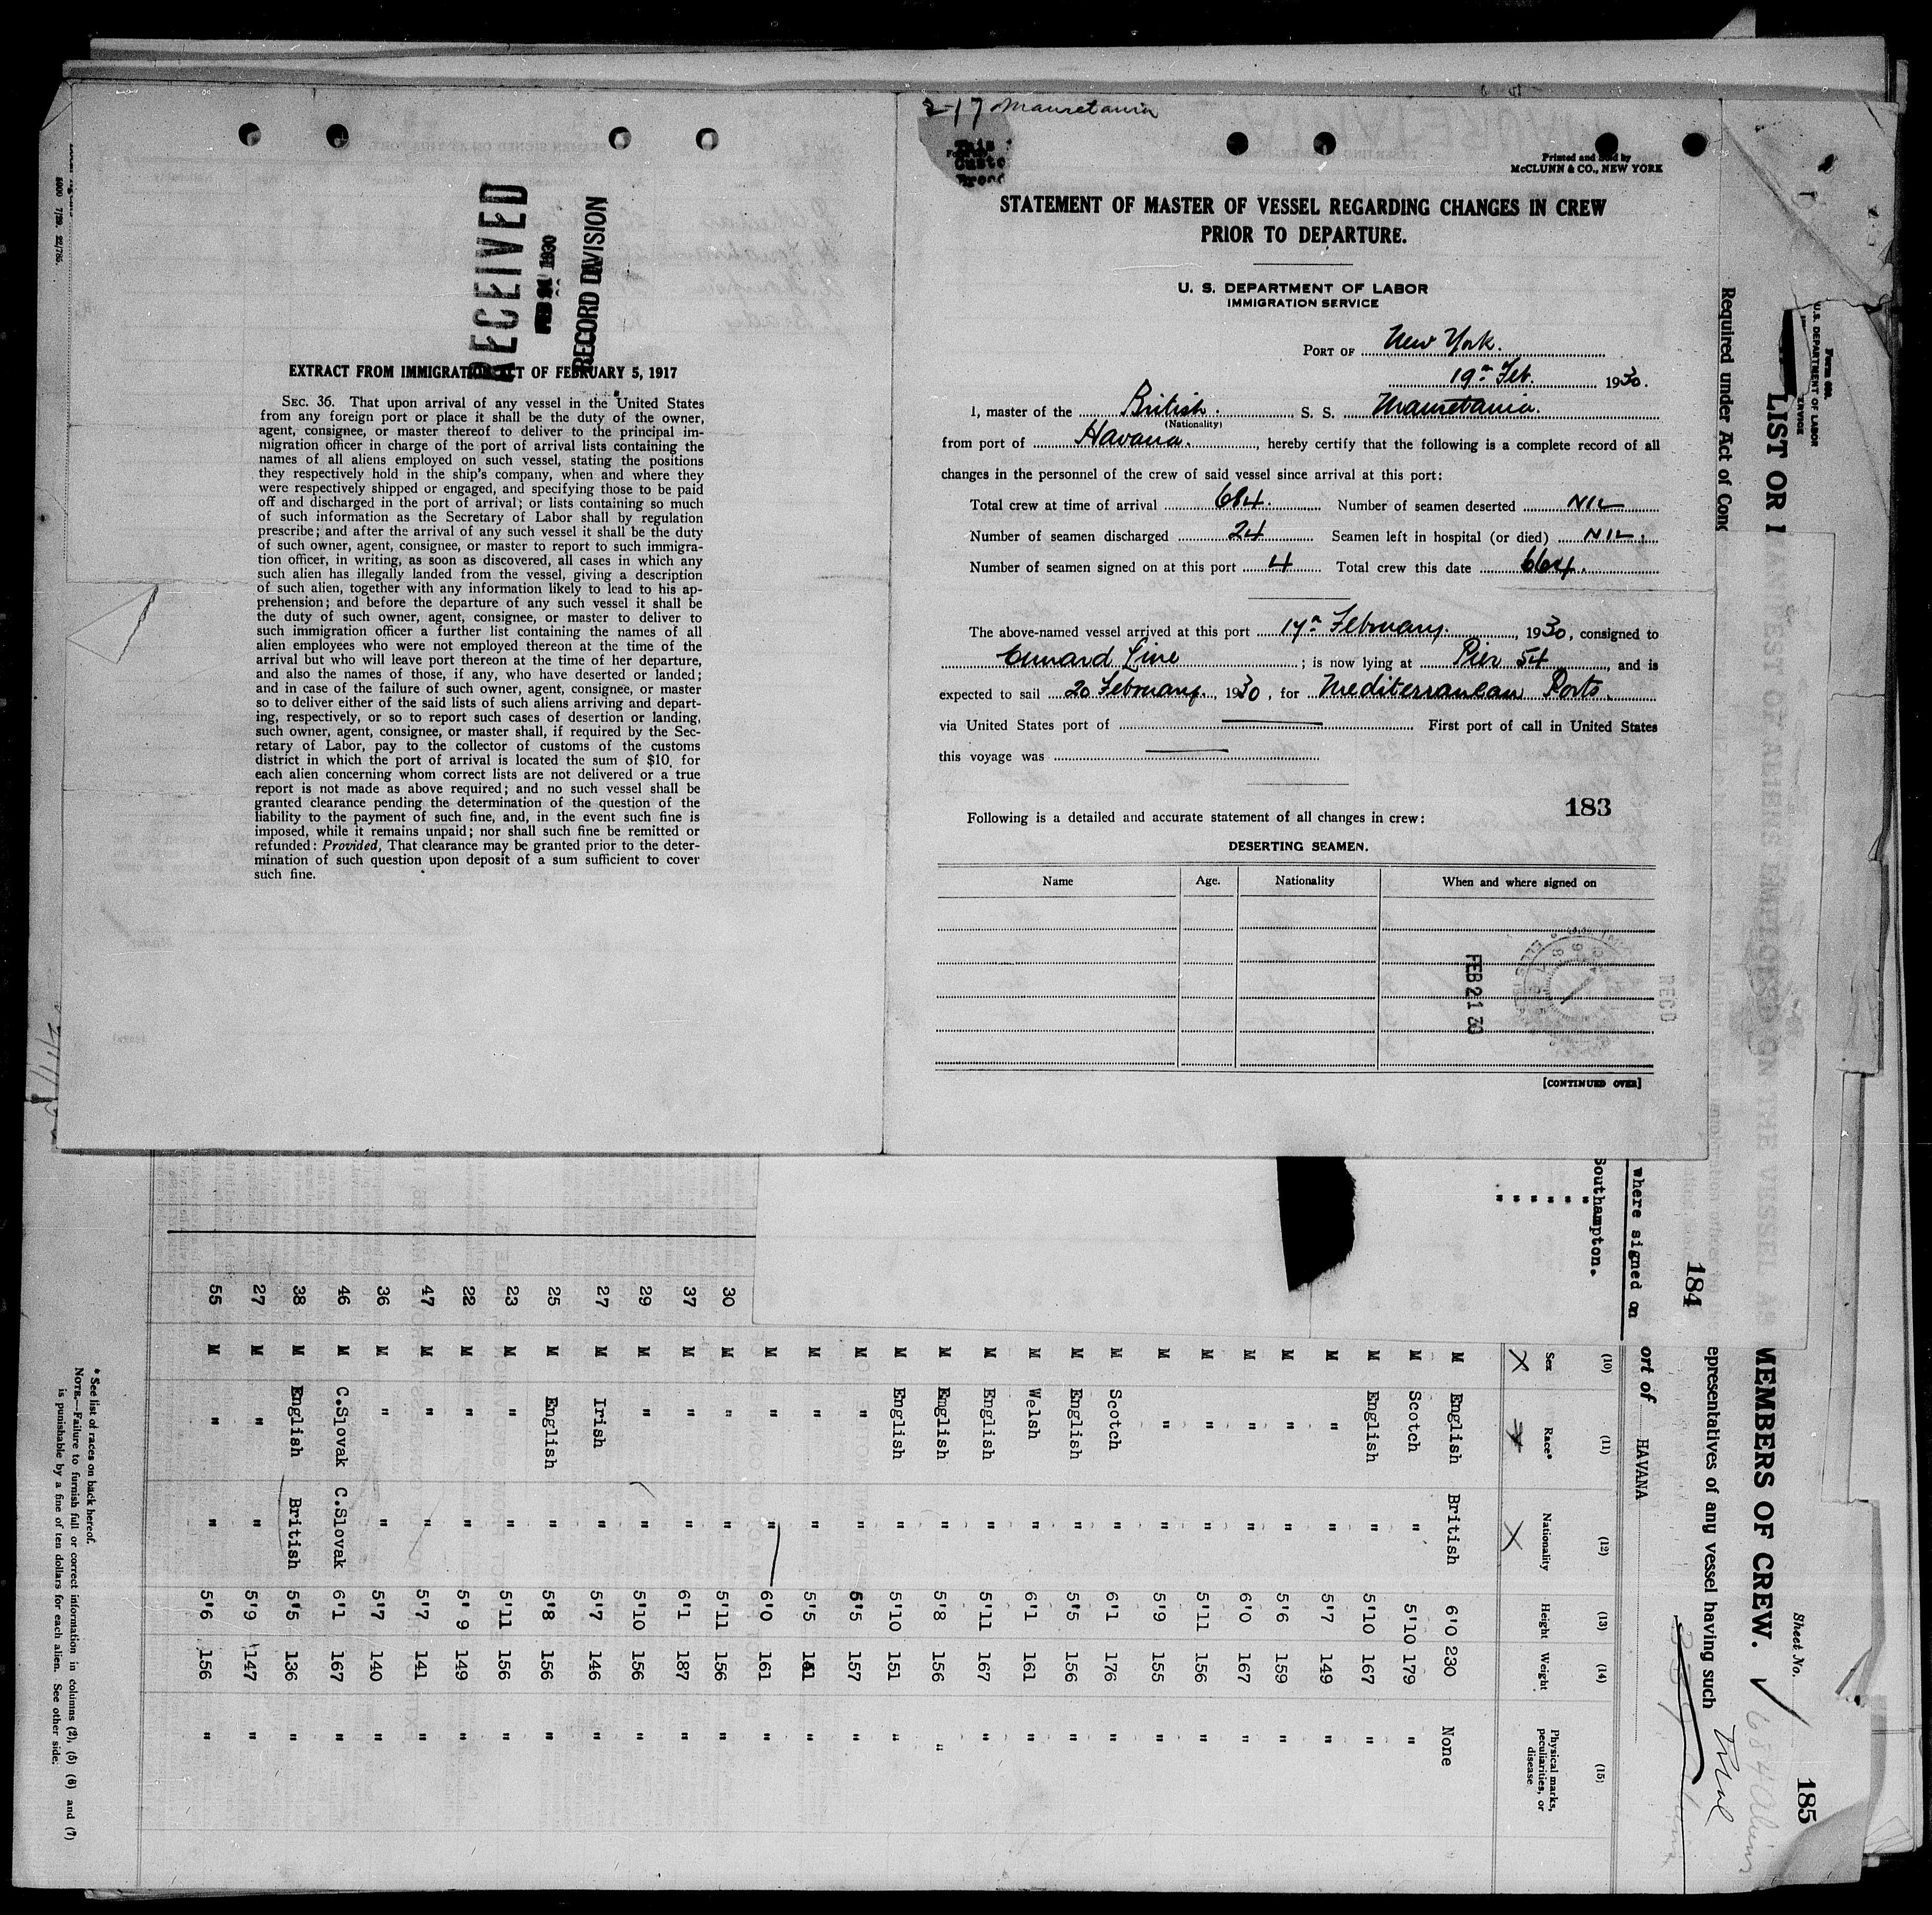 2-17 Mauretania
This
Custo
Printed and Sold by
McCLUNN & CO., NEW YORK
STATEMENT OF MASTER OF VESSEL REGARDING CHANGES IN CREW
PRIOR TO DEPARTURE.
U. S. DEPARTMENT OF LABOR
IMMIGRATION SERVICE
PORT OF New York.
19th Feb. 1930.
I, master of the British. S. S. Mauretania.
(Nationality)
from port of Havana., hereby certify that the following is a complete record of all
changes in the personnel of the crew of said vessel since arrival at this port:
Total crew at time of arrival 684. Number of seamen deserted NIL
Number of seamen discharged 24 Seamen left in hospital (or died) NIL.
Number of seamen signed on at this port 4 Total crew this date 664.
The above-named vessel arrived at this port 17th February. 1930, consigned to
Cunard Line; is now lying at Pier 54, and is
expected to sail 20 February., 1930, for Mediterranean Ports.
via United States port of ——— First port of call in United States
this voyage was ———
183
Following is a detailed and accurate statement of all changes in crew:
DESERTING SEAMEN.
Name Age. Nationality When and where signed on
FEB 21 30
RECD
[CONTINUED OVER]
5000 7/29. 22/786.
RECEIVED
1930
RECORD DIVISION
EXTRACT FROM IMMIGRATION ACT OF FEBRUARY 5, 1917
SEC. 36. That upon arrival of any vessel in the United States
from any foreign port or place it shall be the duty of the owner,
agent, consignee, or master thereof to deliver to the principal im-
migration officer in charge of the port of arrival lists containing the
names of all aliens employed on such vessel, stating the positions
they respectively hold in the ship's company, when and where they
were respectively shipped or engaged, and specifying those to be paid
off and discharged in the port of arrival; or lists containing so much
of such information as the Secretary of Labor shall by regulation
prescribe; and after the arrival of any such vessel it shall be the duty
of such owner, agent, consignee, or master to report to such immigra-
tion officer, in writing, as soon as discovered, all cases in which any
such alien has illegally landed from the vessel, giving a description
of such alien, together with any information likely to lead to his ap-
prehension; and before the departure of any such vessel it shall be
the duty of such owner, agent, consignee, or master to deliver to
such immigration officer a further list containing the names of all
alien employees who were not employed thereon at the time of the
arrival but who will leave port thereon at the time of her departure,
and also the names of those, if any, who have deserted or landed;
and in case of the failure of such owner, agent, consignee, or master
so to deliver either of the said lists of such aliens arriving and depart-
ing, respectively, or so to report such cases of desertion or landing,
such owner, agent, consignee, or master shall, if required by the Sec-
retary of Labor, pay to the collector of customs of the customs
district in which the port of arrival is located the sum of $10 for
each alien concerning whom correct lists are not delivered or a true
report is not made as above required; and no such vessel shall be
granted clearance pending the determination of the question of the
liability to the payment of such fine, and, in the event such fine is
imposed, while it remains unpaid; nor shall such fine be remitted or
refunded: Provided, That clearance may be granted prior to the deter-
mination of such question upon deposit of a sum sufficient to cover
such fine.
U. S. DEPARTMENT OF LABOR
Sheet No.
185
LIST OR MEMBERS OF CREW. ✓
Total
Required under Act of Cong
epresentatives of any vessel having such
184
ort of HAVANA
where signed on
Southampton.
(10) (11) (12) (13) (14) (15)
Sex Race* Nationality Height Weight Physical marks, peculiarities, or disease.
M English British 6'0 230 None
M Scotch " 5'10 179 "
M English " 5'10 167 "
M " " 5'7 149 "
M " " 5'6 159 "
M " " 6'0 167 "
M " " 5'11 156 "
M " " 5'9 155 "
M Scotch " 6'1 176 "
M English " 5'5 156 "
M Welsh " 6'1 161 "
M English " 5'11 167 "
M English " 5'8 156 "
M English " 5'10 151 "
M " " 5'5 157 "
M " " 5'5 141 "
M " " 6'0 161 "
30 M " " 5'11 156 "
37 M " " 6'1 187 "
29 M " " 5'10 156 "
27 M Irish " 5'7 146 "
25 M English " 5'8 156 "
23 M " " 5'11 156 "
22 M " " 5'9 149 "
47 M " " 5'7 141 "
36 M " " 5'7 140 "
46 M C.Slovak C.Slovak 6'1 167 "
38 M English British 5'5 136 "
27 M " " 5'9 147 "
55 M " " 5'6 156 "
* See list of races on back hereof.
NOTE.—Failure to furnish full or correct information in columns (2), (5) (6) and (7)
is punishable by a fine of ten dollars for each alien. See other side.